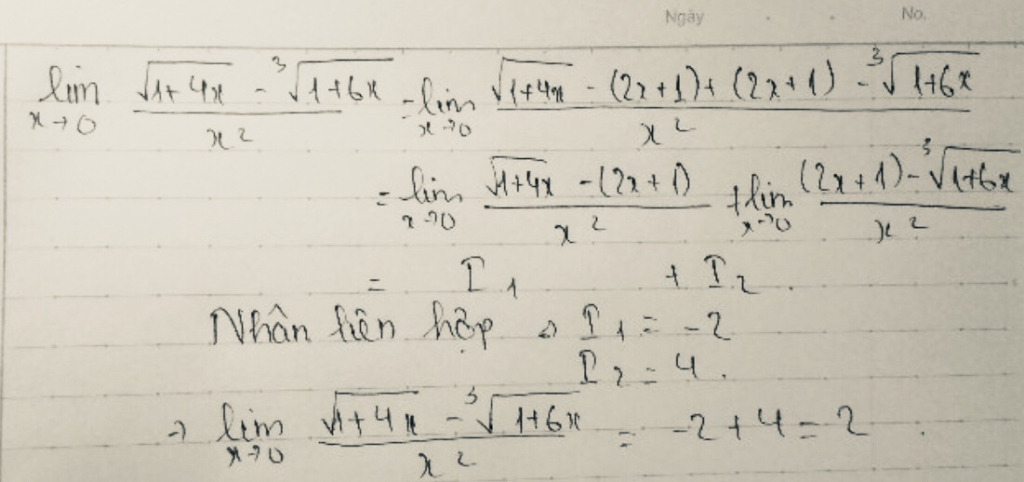 Ngày No.
lim x→0 (√(1+4x) - ³√(1+6x))/x² = lim x→0 (√(1+4x) - (2x+1) + (2x+1) - ³√(1+6x))/x²
= lim x→0 (√(1+4x) - (2x+1))/x² + lim x→0 ((2x+1) - ³√(1+6x))/x²
= I₁ + I₂.
Nhân liên hợp → I₁ = -2
I₂ = 4.
→ lim x→0 (√(1+4x) - ³√(1+6x))/x² = -2+4=2.